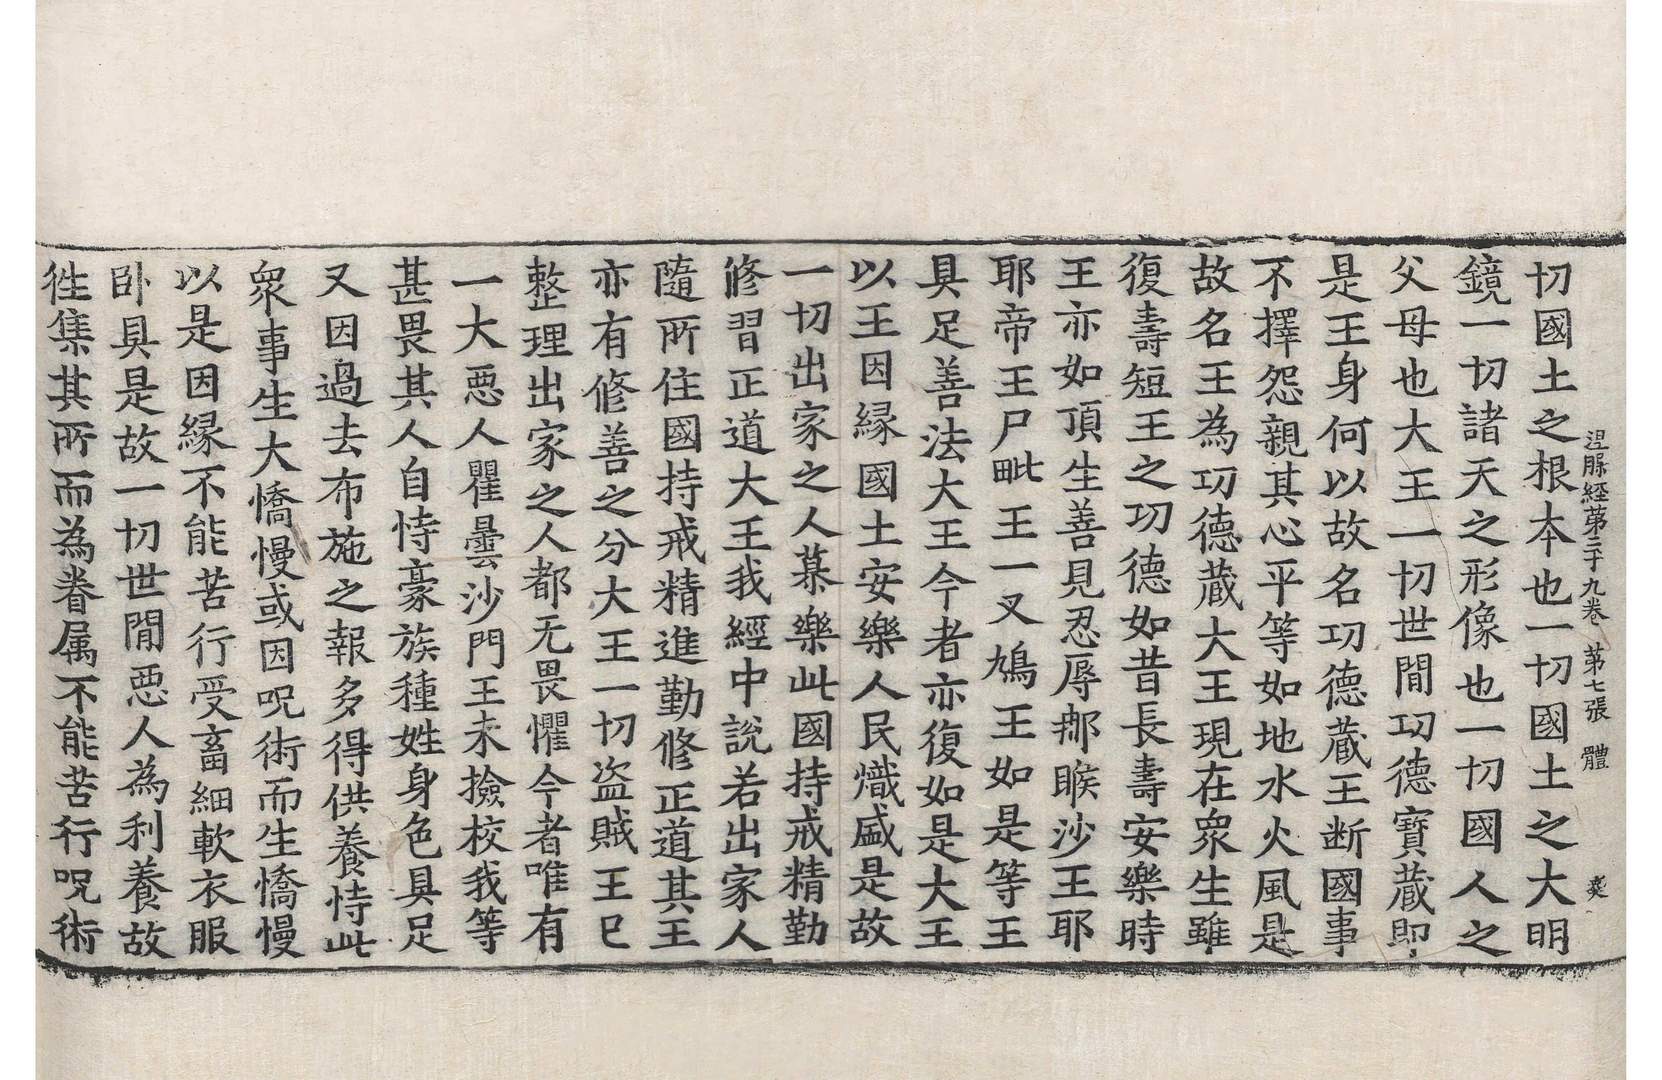 涅脲経苐二十九卷 苐七張 體
切國土之根本也一切國土之大明
鏡一切諸天之形像也一切國人之
父母也大王一切世閒功德寶蔵即
是王身何以故名功德蔵王断國事
不擇怨親其心平等如地水火風是
故名王為功德蔵大王現在衆生雖
復壽短王之功德如昔長壽安樂時
王亦如頂生善見忍辱那睺沙王耶
耶帝王尸毗王一叉鳩王如是等王
具足善法大王今者亦復如是大王
以王因縁國土安樂人民熾盛是故
一切出家之人慕樂此國持戒精勤
修習正道大王我經中說若出家人
隨所住國持戒精進勤修正道其王
亦有修善之分大王一切盗賊王已
整理出家之人都无畏懼今者唯有
一大惡人瞿曇沙門王未撿校我等
甚畏其人自恃豪族種姓身色具足
又因過去布施之報多得供養恃此
衆事生大憍慢或因呪術而生憍慢
以是因縁不能苦行受畜細軟衣服
卧具是故一切世閒惡人為利養故
徃集其所而為眷属不能苦行呪術